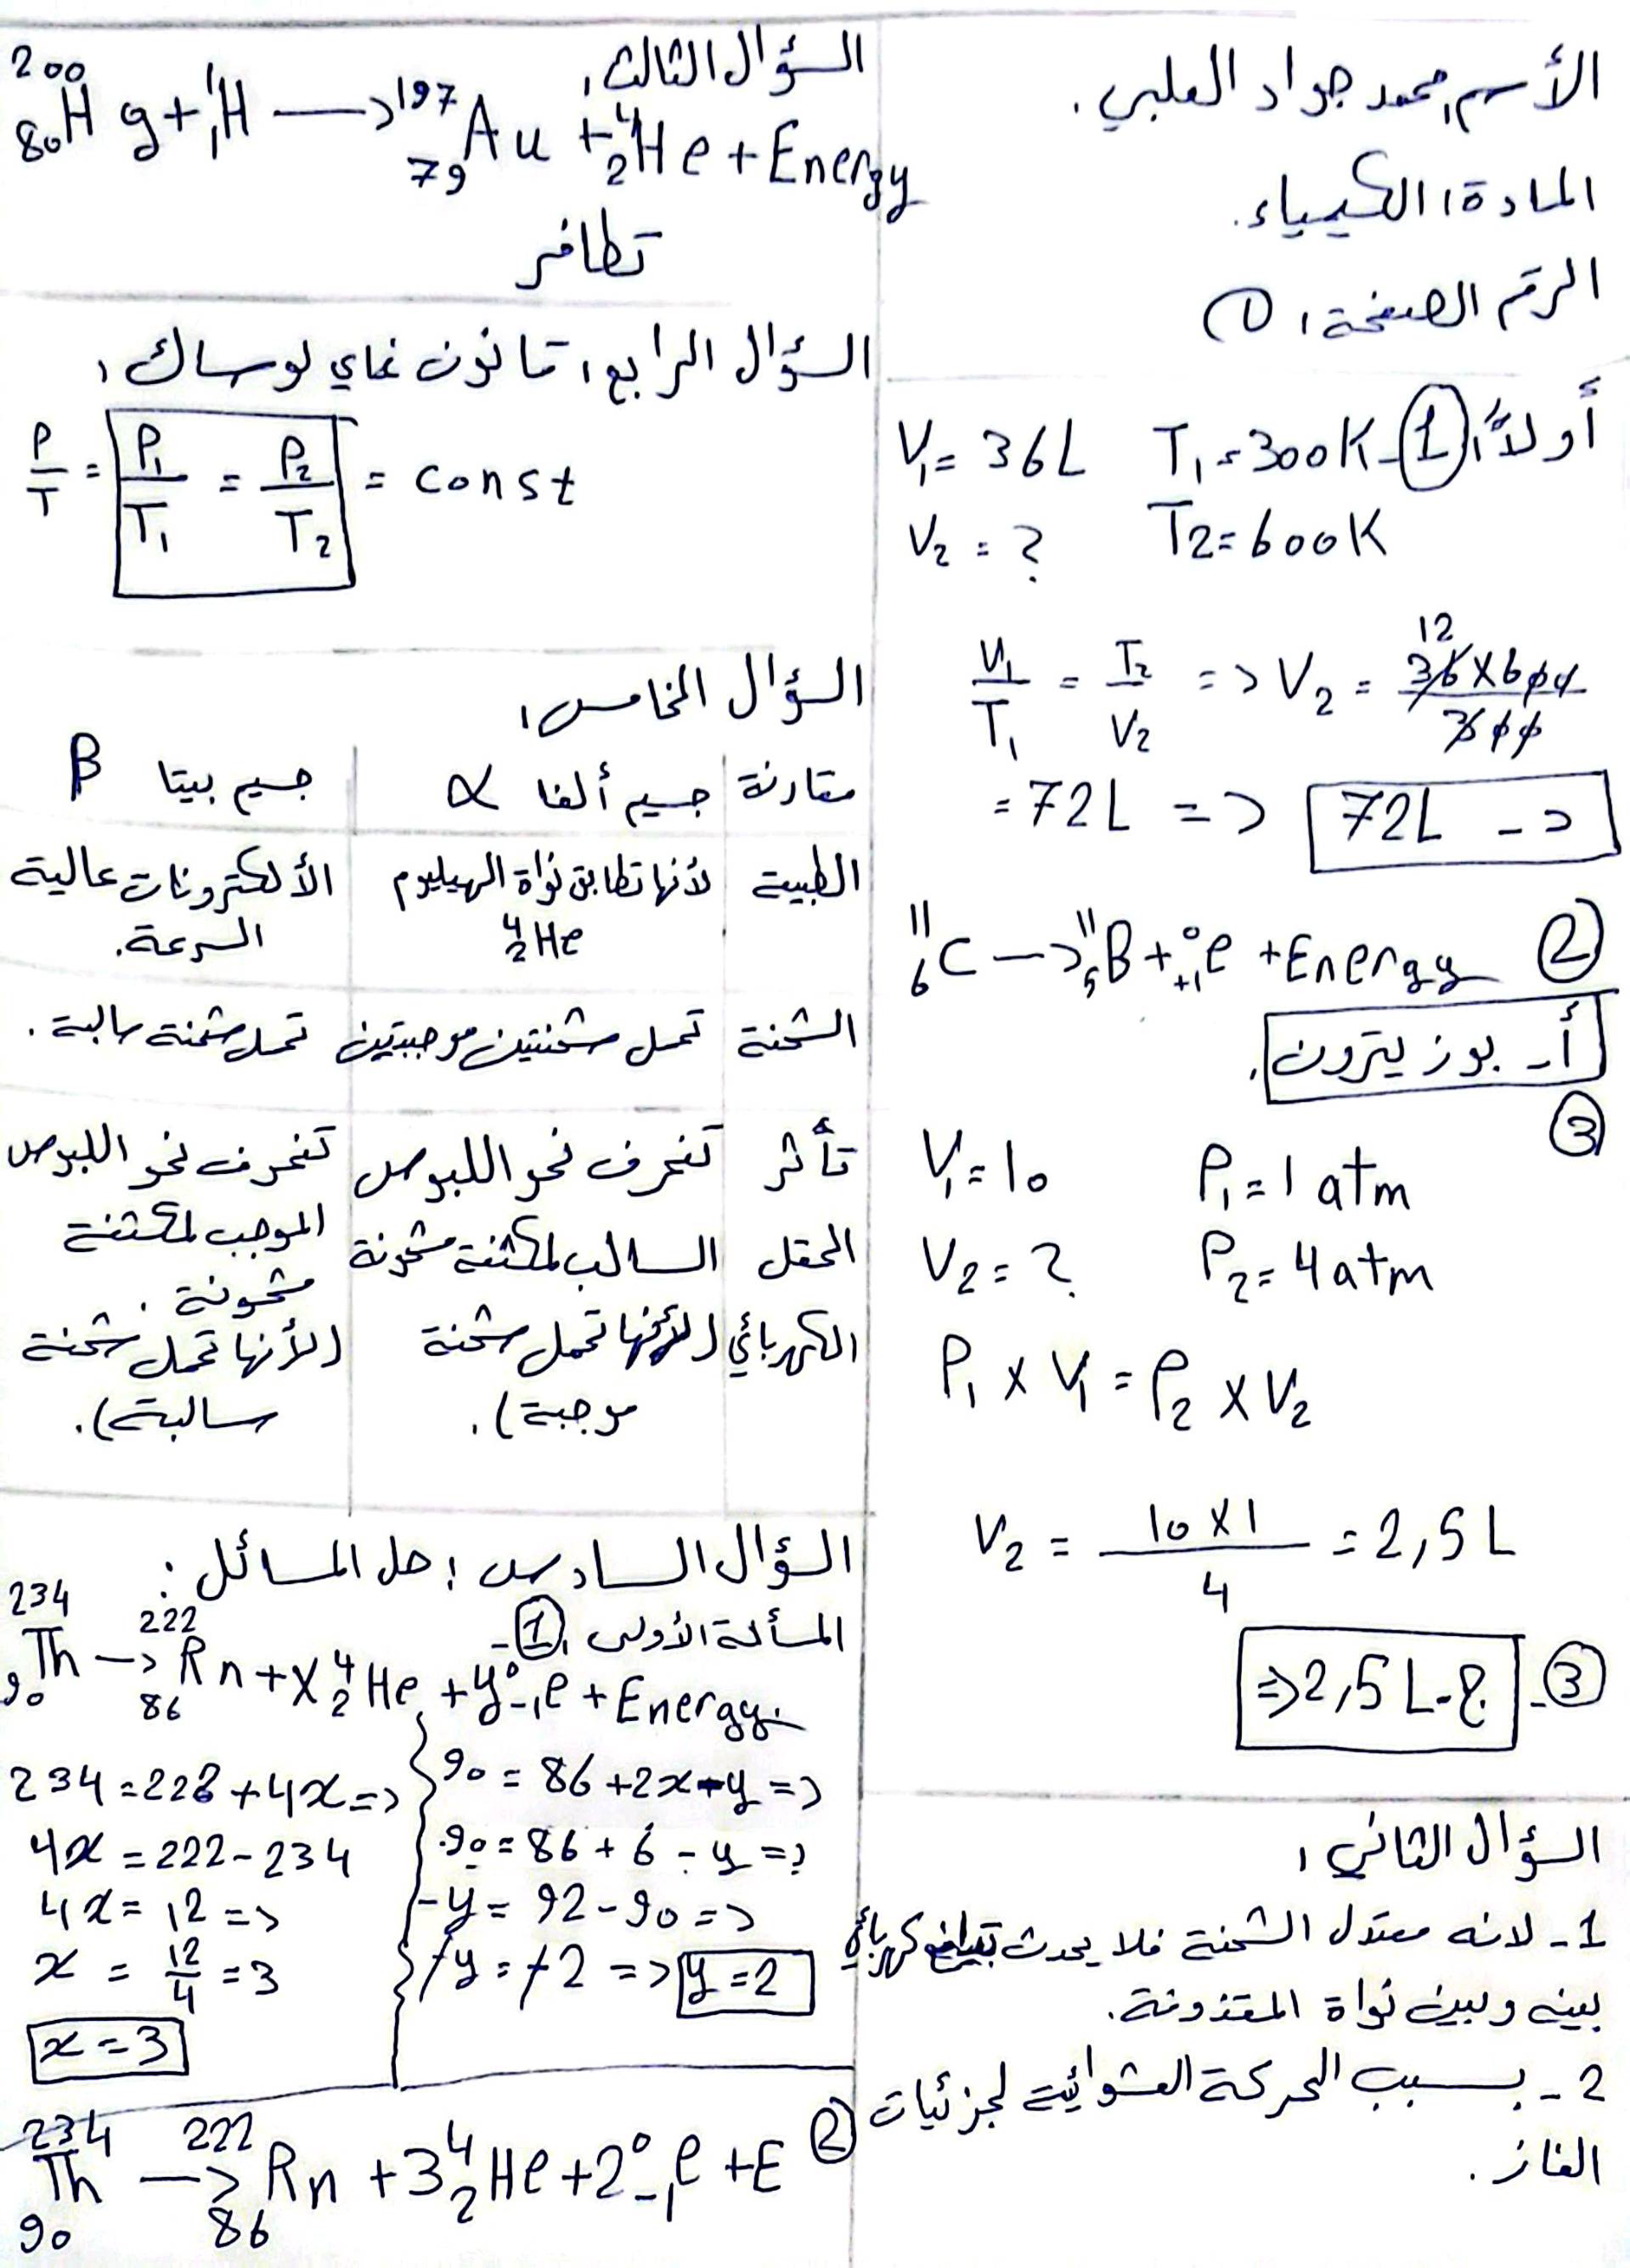 الأسم: محمد جواد العلبي.
المادة: الكيمياء.
الرقم الصفحة: ①
أولاً: ① - T₁ = 300K V₁ = 36L
T₂ = 600K V₂ = ?
V₁/T₁ = T₂/V₂ => V₂ = 36 × 600 / 300 12
= 72L => د - 72L
② ¹¹₆C –> ¹¹₅B + ⁰₊₁e + Energy
أ- بوزيترون.
③
V₁ = 10 P₁ = 1 atm
V₂ = ? P₂ = 4 atm
P₁ × V₁ = P₂ × V₂
V₂ = 10 × 1 / 4 = 2,5 L
③ - ج - 2,5 L <=
السؤال الثاني:
1 - لانه معتدل الشحنة فلا يحدث كهربائي
بينه وبين نواة المقذوفة.
2 - بسبب الحركة العشوائية لجزئيات
الغاز.
السؤال الثالث:
²⁰⁰₈₀Hg + ¹₁H —> ¹⁹⁷₇₉Au + ⁴₂He + Energy
تطافر
السؤال الرابع: قانون غاي لوساك:
P/T = P₁/T₁ = P₂/T₂ = const
السؤال الخامس:
مقارنة جسيم ألفا α جسيم بيتا β
الطبيعة لأنها تطابق نواة الهيليوم الألكترونات عالية
⁴₂He السرعة.
الشحنة تحمل شحنتين موجبتين تحمل شحنة سالبة.
تأثر تنحرف نحو اللبوس تنحرف نحو اللبوس
الحقل السالب لمكثفة مشحونة الموجب لمكثفة
مشحونة.
الكهربائي (لأنها تحمل شحنة (لأنها تحمل شحنة
موجبة). سالبة).
السؤال السادس: حل المسائل:
المسألة الأولى: ① -
²³⁴₉₀Th –> ²²²₈₆Rn + X ⁴₂He + y ⁰₋₁e + Energy.
234 = 222 + 4x =>
4x = 222 - 234
4x = 12 =>
x = 12/4 = 3
x = 3
90 = 86 + 2x - y =>
90 = 86 + 6 - y =>
-y = 92 - 90 =>
-y = -2 => y = 2
② ²³⁴₉₀Th —> ²²²₈₆Rn + 3 ⁴₂He + 2 ⁰₋₁e + E